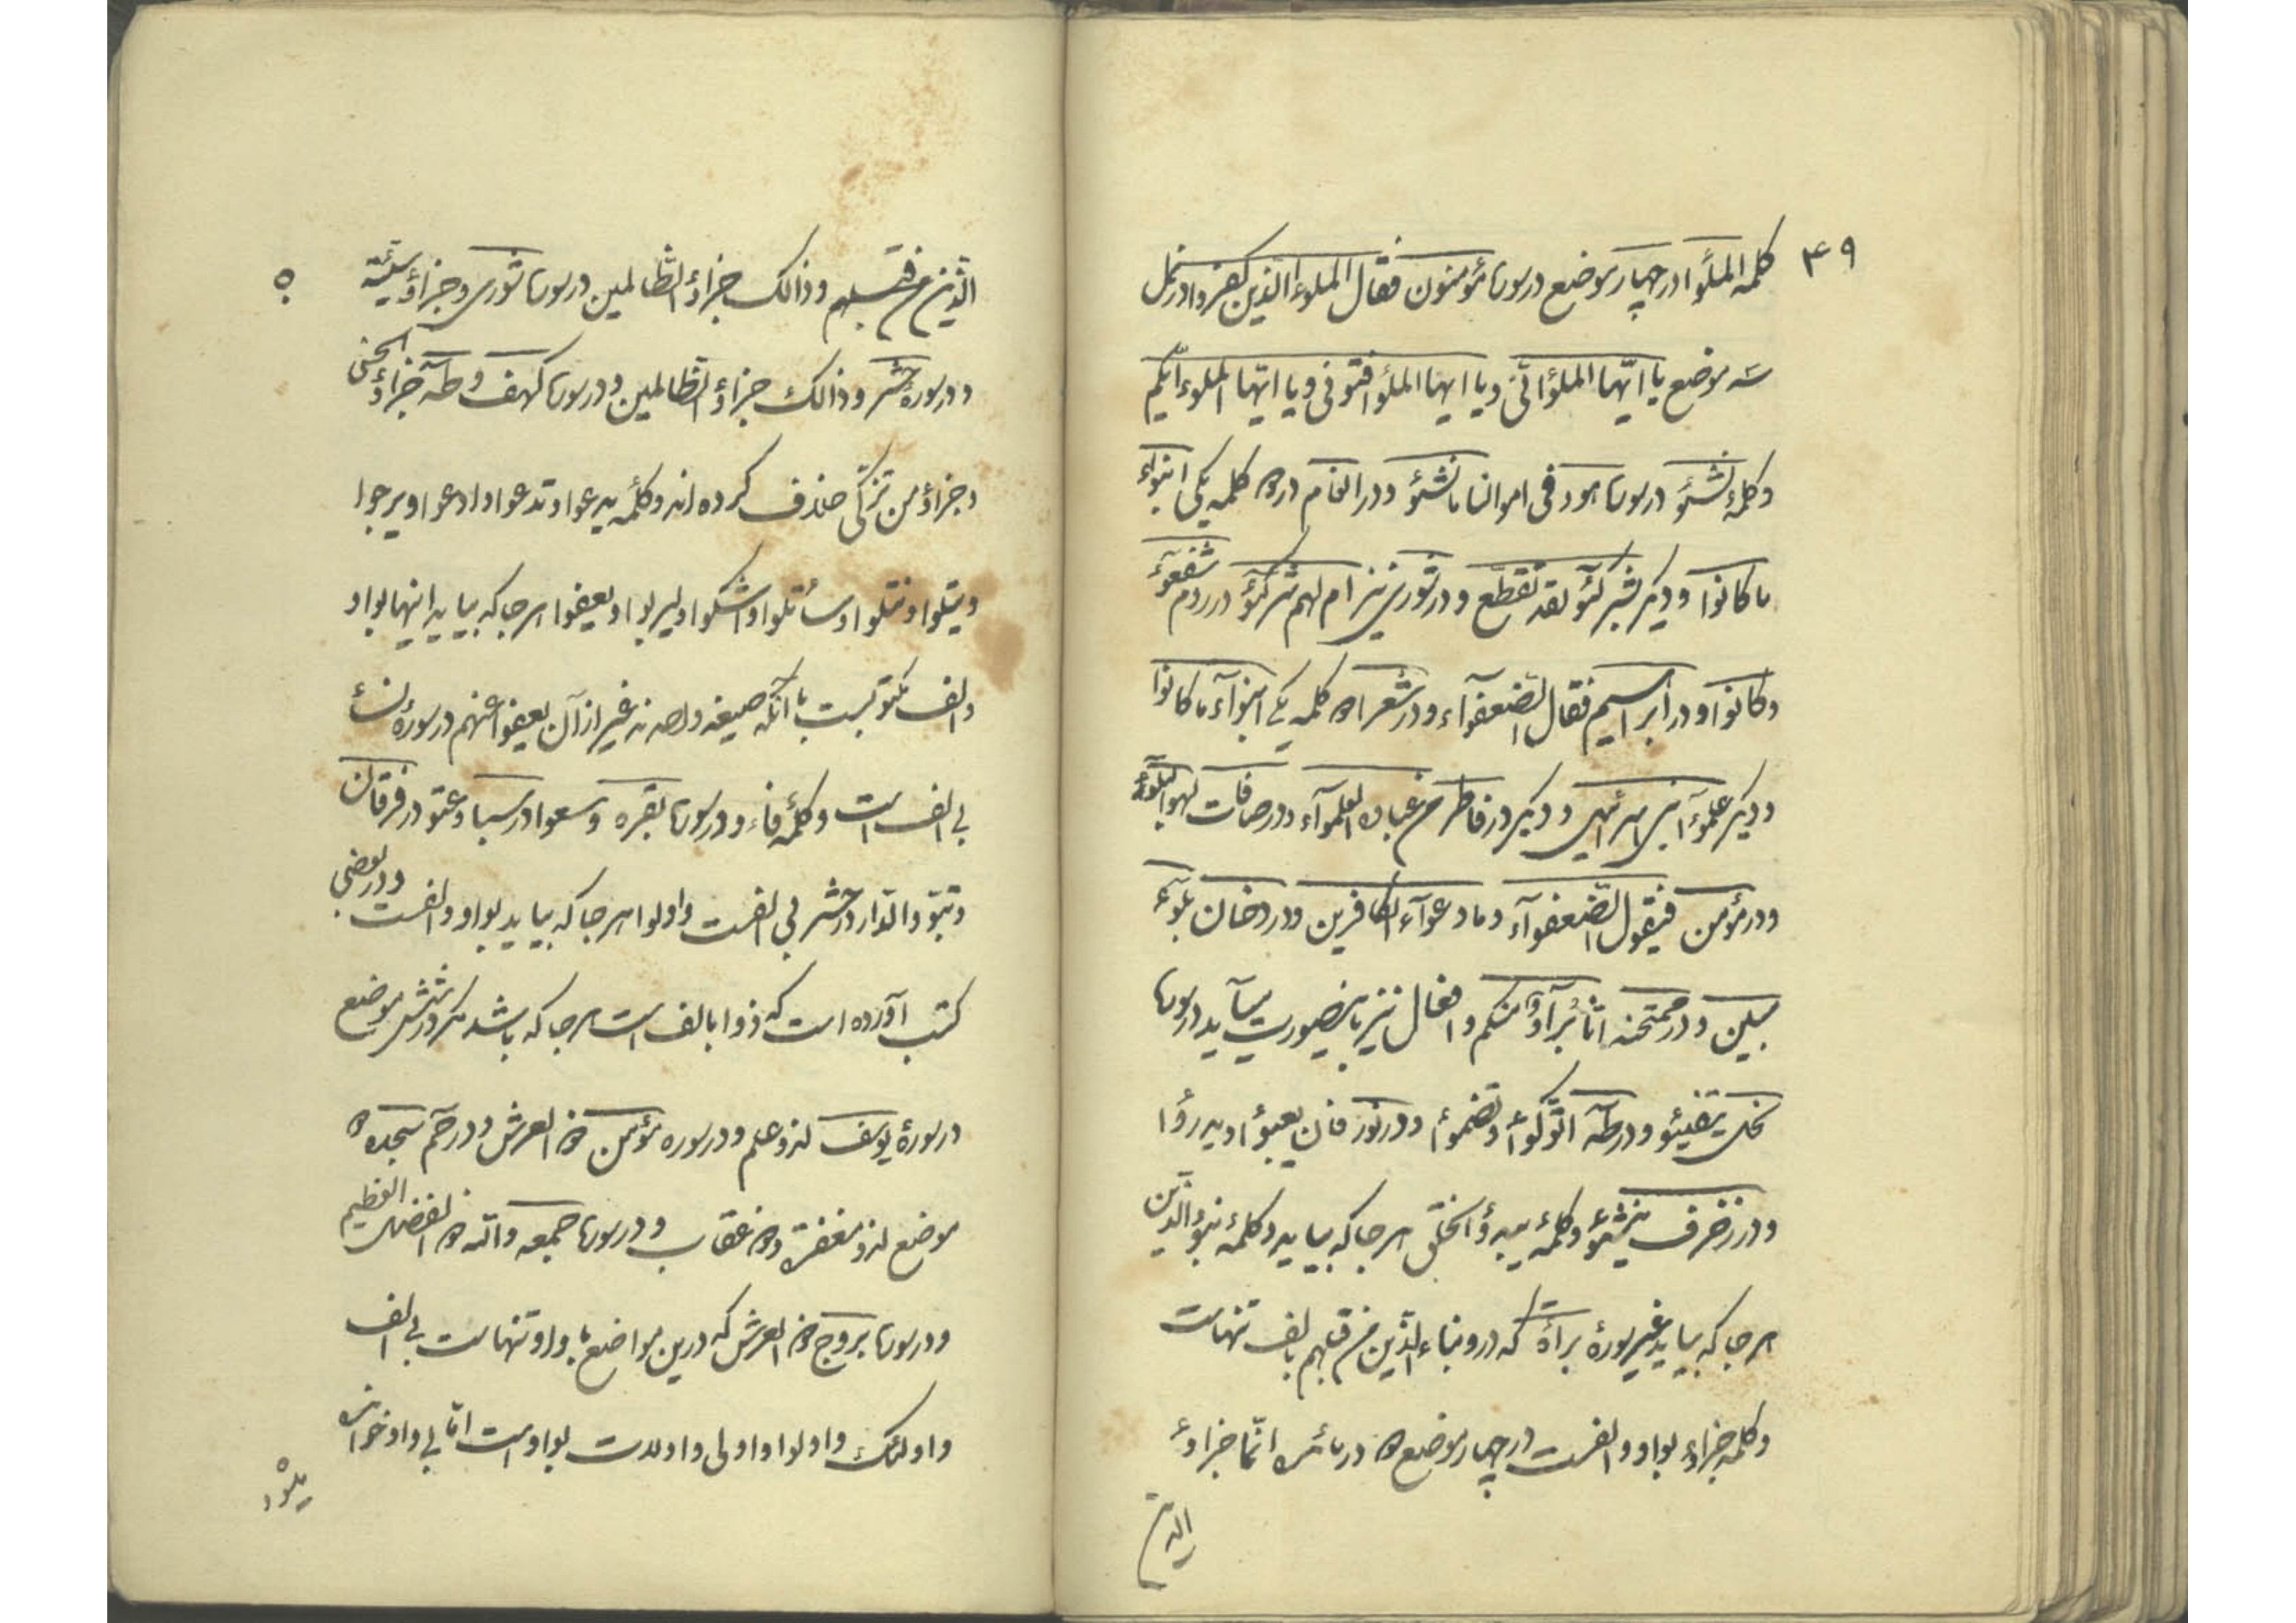 ۴۹
کلمه الملؤا در چهار موضع در سوره مؤمنون فقال الملؤا الذین کفروا در نمل
سه موضع یا ایّها الملؤا انّی و یا ایها الملؤا افتونی و یا ایّها الملؤا ایّکم
و کلمهٔ نشؤ در سوره هود فی اموالنا ما نشؤ و در انعام در کلمه یکی انبؤا
ما کانوا و دیگر شرکؤ لقد تقطّع و در شوری نیز ام لهم شرکؤ در روم شفعؤ
و کانوا و در ابراهیم فقال الضعفوآء و در شعرا کلمه یکی انبوآء ما کانوا
و دیگر علموآء بنی اسرائیل و دیگر در فاطر من عباده العلموآء و در صافات لهو البلوء
و در مؤمن فیقول الضّعفوآء و ما دعوآء الکافرین و در دخان بلوء
مبین و در ممتحنه انّا برآؤا منکم و افعال نیز باینصورت میآید در سوره
نحل یتفیؤ و در طه اتوکؤا و تضمؤا و در نور فان یعبؤا و یدرؤا
و در زخرف ینشؤ و کلمهٔ یبدؤا الخلق هر جا که بیاید و کلمهٔ نبؤ الذین
هر جا که بیاید غیر سورهٔ برأة که در و نباء الذین من قبلهم بالف تنهاست
و کلمه جزاؤ بواو و الفست در چهار موضع در مائده انّما جزاؤ
الذین
۵۰
الذین من قبلهم و ذالک جزاؤ الظالمین در سوره شوری و جزاؤ سیّئة
و در سورهٔ حشر و ذالک جزاؤ الظالمین و در سوره کهف و طه جزاؤ الحسنی
و جزاؤ من تزکّی حذف کرده اند و کلمه یدعوا و تدعوا و ادعوا و یرجوا
و یتلوا و نتلوا و سأتلوا و اشکوا و لیربوا و یعفوا هر جا که بیاید اینها بواو
و الف مکتوبست با آنکه صیغه واحدند غیر از آن یعفوا عنهم در سورهٔ نساء
بی الف است و کلمهٔ فاءو در سوره بقره و سعوا در سبا و عتو در فرقان
و تبوّؤ الدّار در حشر بی الفست و اولوا هر جا که بیاید بواو و الفست و در بعضی
کتب آورده است که ذوا بالف است هر جا که باشد مکر در شش موضع
در سورهٔ یوسف لذو علم و در سوره مؤمن ذو العرش و در حم سجده دو
موضع لذو مغفرة و ذو عقاب و در سوره جمعه و الله ذو الفضل العظیم
و در سوره بروج ذو العرش که درین مواضع بواو تنهاست بی الف
و اولئک و اولوا و اولی و اولات بواو است امّا بی واو خوانده
میشود